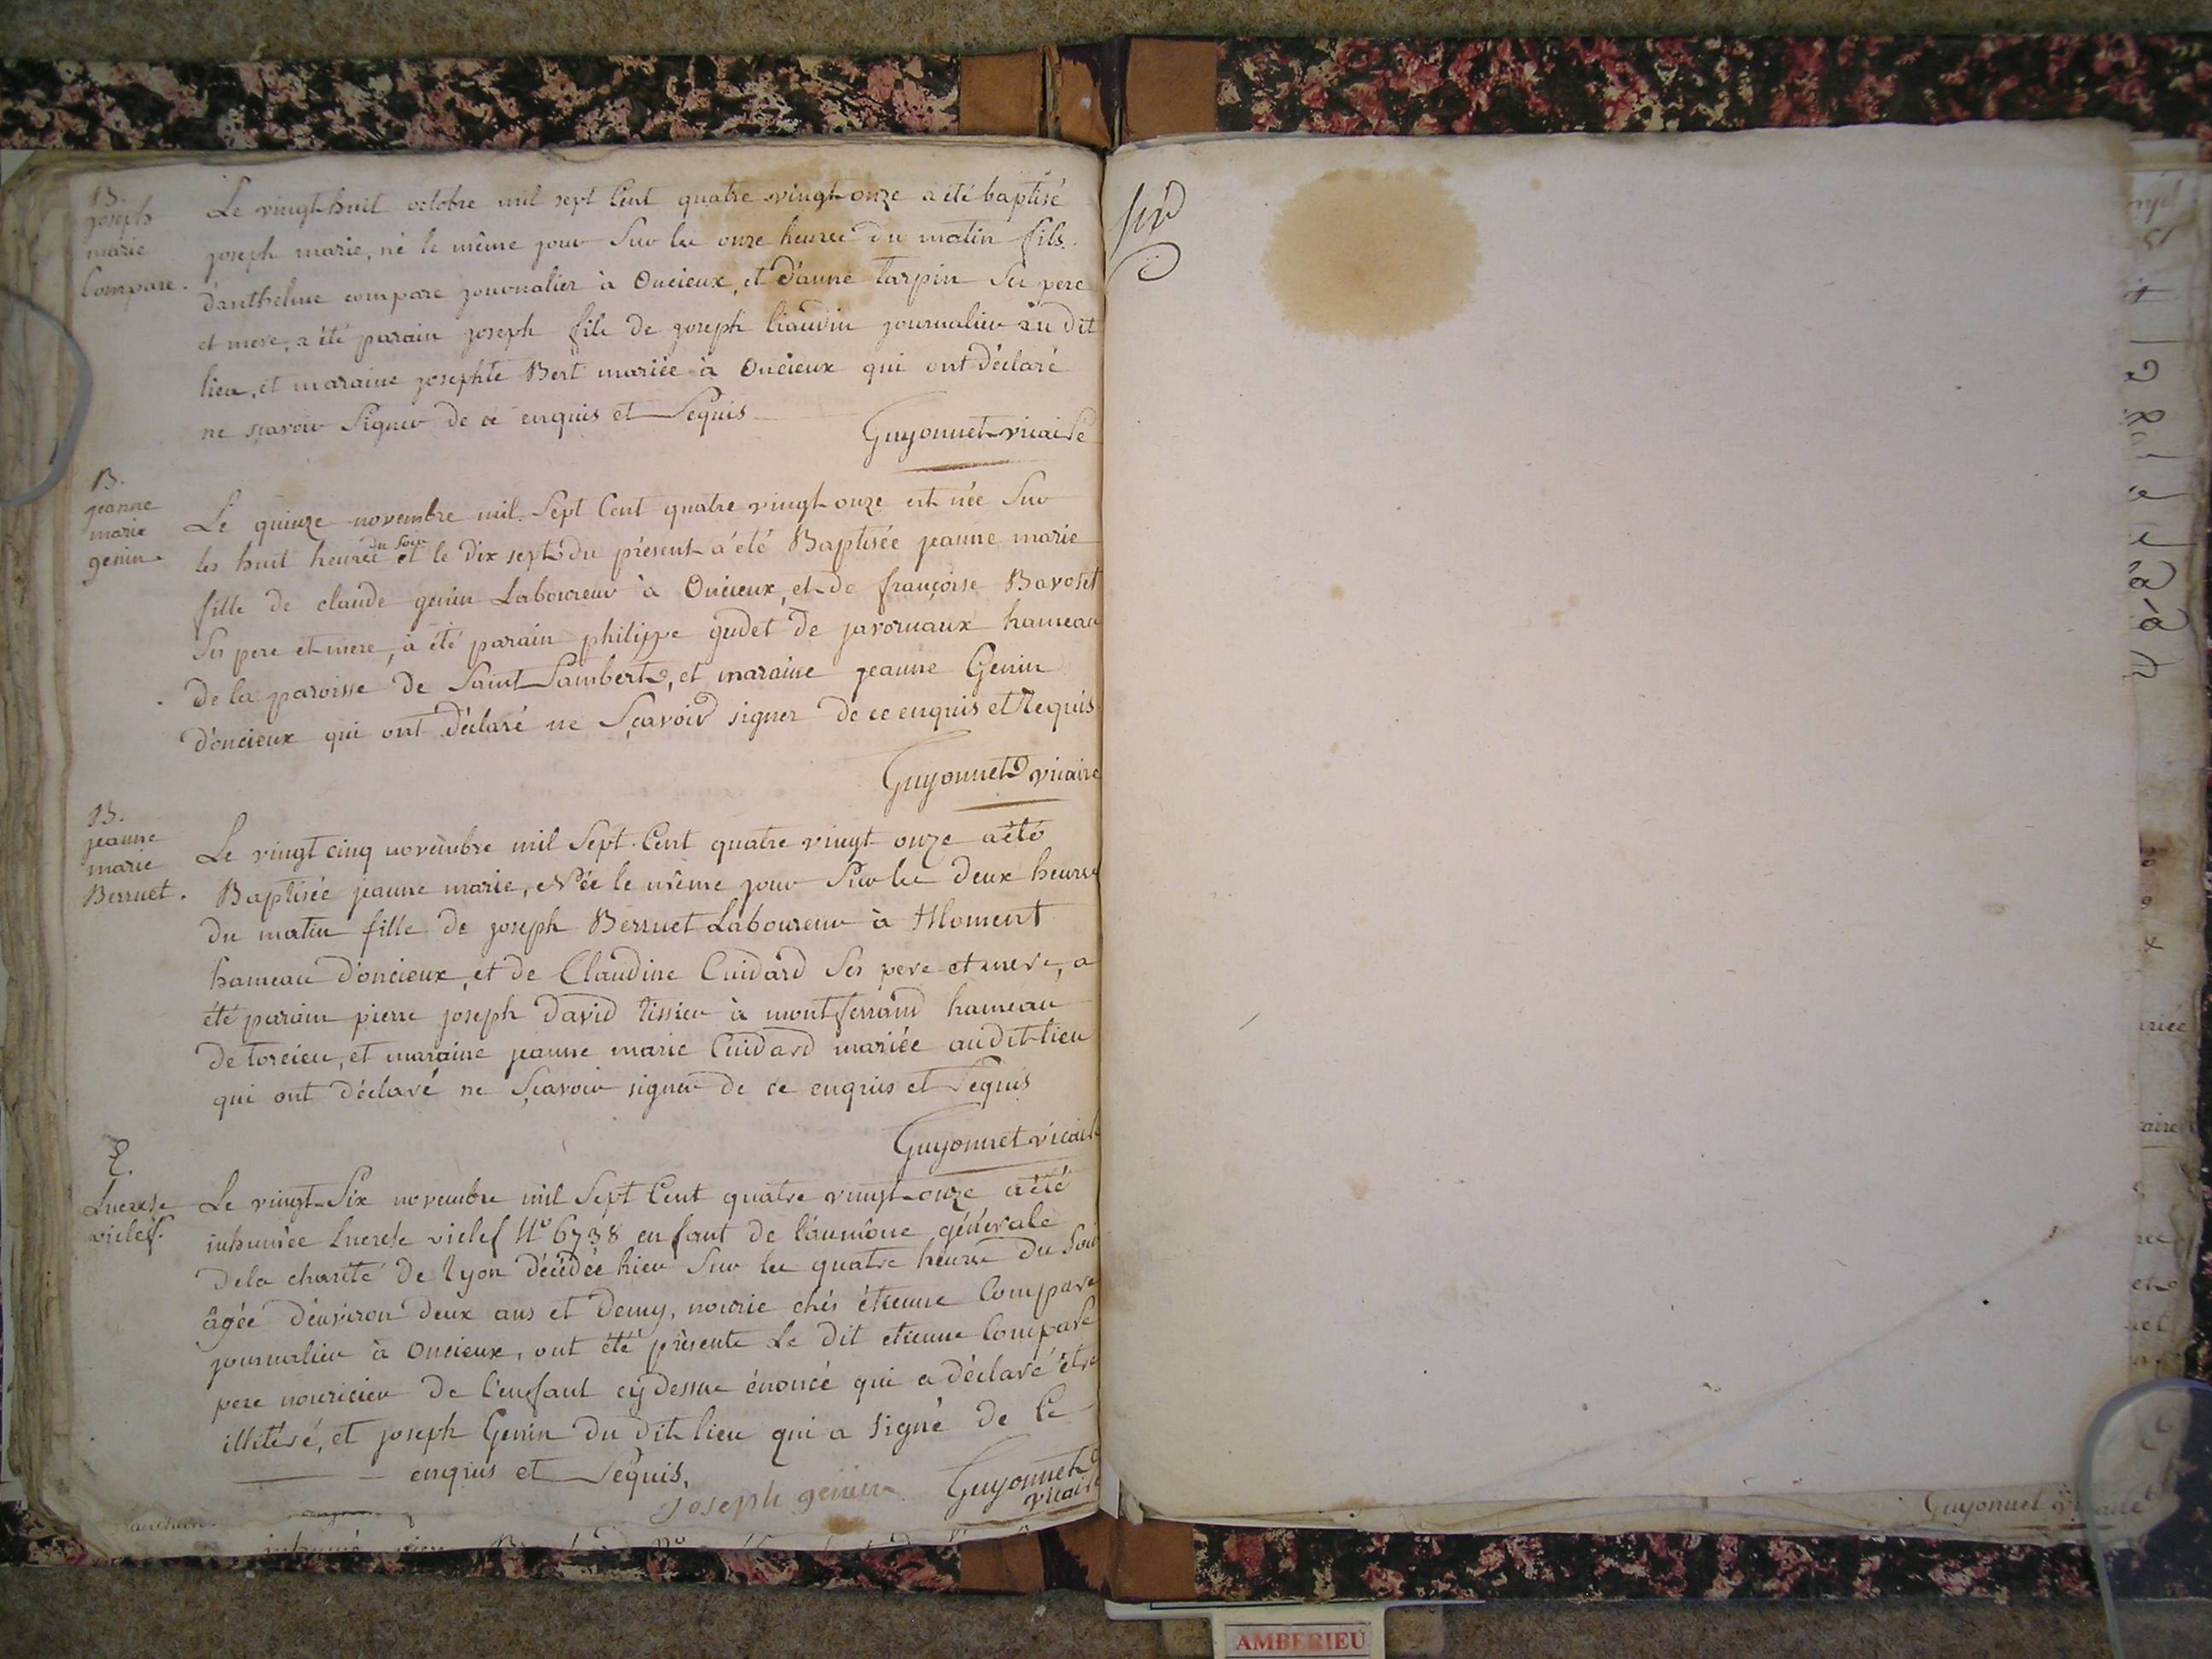 B.
joseph
marie
Compare.
Le vingt huit octobre mil sept Cent quatre vingt onze a été baptisé
joseph marie, né le même jour Sur les onze heures du matin fils
d'anthelme compare journalier à Oncieux, et d'anne tarpin Ses pere
et mere, a été parain joseph fils de joseph liauvin journalier au dit
lieu, et maraine josephte Bert mariée à Oncieux qui ont déclaré
ne sçavoir Signer de ce enquis et Requis
Guyonnet vicaire
B.
jeanne
marie
genin.
Le quinze novembre mil Sept Cent quatre vingt onze est née Sur
les huit heures du soir et le dix sept du présent a été Baptisée jeanne marie
fille de claude genin Laboureur à Oncieux, et de françoise Bavoset
Ses pere et mere, a été parain philippe gudet de javornaux hameau
de la paroisse de Saint Lambert, et maraine jeanne Genin
d'oncieux qui ont déclaré ne Sçavoir signer de ce enquis et Requis
Guyonnet vicaire
B.
jeanne
marie
Berruet.
Le vingt cinq novembre mil Sept Cent quatre vingt onze a été
Baptisée jeanne marie, Née le même jour Sur les deux heures
du matin fille de joseph Berruet Laboureur à Moment
hameau d'oncieux, et de Claudine Cuidard Ses pere et mere, a
été parain pierre joseph david tissieu à montferrand hameau
de torcieu, et maraine jeanne marie Cuidard mariée au dit lieu
qui ont déclaré ne Sçavoir signer de ce enquis et Requis
Guyonnet vicaire
Lucrese
viclef.
Le vingt Six novembre mil Sept Cent quatre vingt onze a été
inhumée Lucrese viclef N° 6738 enfant de l'aumône générale
de la charité de lyon décédée hier Sur les quatre heures du Soir
âgée d'environ deux ans et demy, nourie chés étienne Compare
journalier à Oncieux, ont été présents Le dit etienne Compare
pere nouricier de l'enfant cy dessus énoncé qui a déclaré être
illitéré, et joseph Genin du dit lieu qui a signé de Ce
enquis et Requis.
joseph genin
Guyonnet
vicaire
Guyonnet vicaire
AMBERIEU